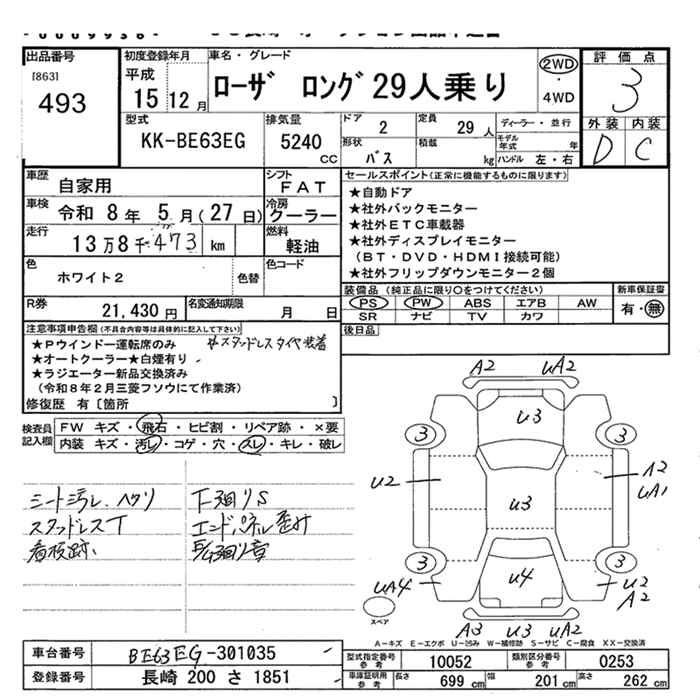 出品番号
[863]
493
初度登録年月
平成
15 12 月
車名・グレード
ローザ ロング29人乗り
2WD
・
4WD
評価点
3
外装 内装
D C
型式
KK-BE63EG
排気量
5240
cc
ドア
2
定員
29 人
ディーラー・並行
モデル年式 年
形状
バス
積載
kg
ハンドル 左・右
車歴
自家用
シフト
FAT
車検
令和 8年 5月(27日)
冷房
クーラー
走行
13万8千473 km
燃料
軽油
色
ホワイト2
色替
色コード
R券
21,430 円
名変通知期限
月 日
セールスポイント(正常に機能するものに限ります)
★自動ドア
★社外バックモニター
★社外ETC車載器
★社外ディスプレイモニター
(BT・DVD・HDMI接続可能)
★社外フリップダウンモニター2個
装備品 (純正品に限り○をつけてください)
新車保証書
PS PW ABS エアB AW
SR ナビ TV カワ
有・無
後日品
注意事項申告欄(不具合内容等は具体的に記入して下さい)
★Pウインドー運転席のみ ☆スタッドレスタイヤ装着
★オートクーラー★白煙有り
★ラジエーター新品交換済み
(令和8年2月三菱フソウにて作業済)
修復歴 有〔箇所 〕
検査員記入欄
FW キズ・飛石・ヒビ割・リペア跡・×要
内装 キズ・汚レ・コゲ・穴・スレ・キレ・破レ
シート汚レ、ヘタリ
スタッドレスT
看板跡
下廻りS
エンドパネル歪み
A2 uA2
u3
3 3
u2 u3 A2
uA1
3 3
uA4 u4 u2
A2
スペア
A3 u3 uA2
A-キズ E-エクボ U-凹み W-補修跡 S-サビ C-腐食 XX-交換済
車台番号
BE63EG-301035
登録番号
長崎 200 さ 1851
型式指定番号
参考
10052
類別区分番号
参考
0253
車庫証明用
参考
長さ 699 cm
幅 201 cm
高さ 262 cm